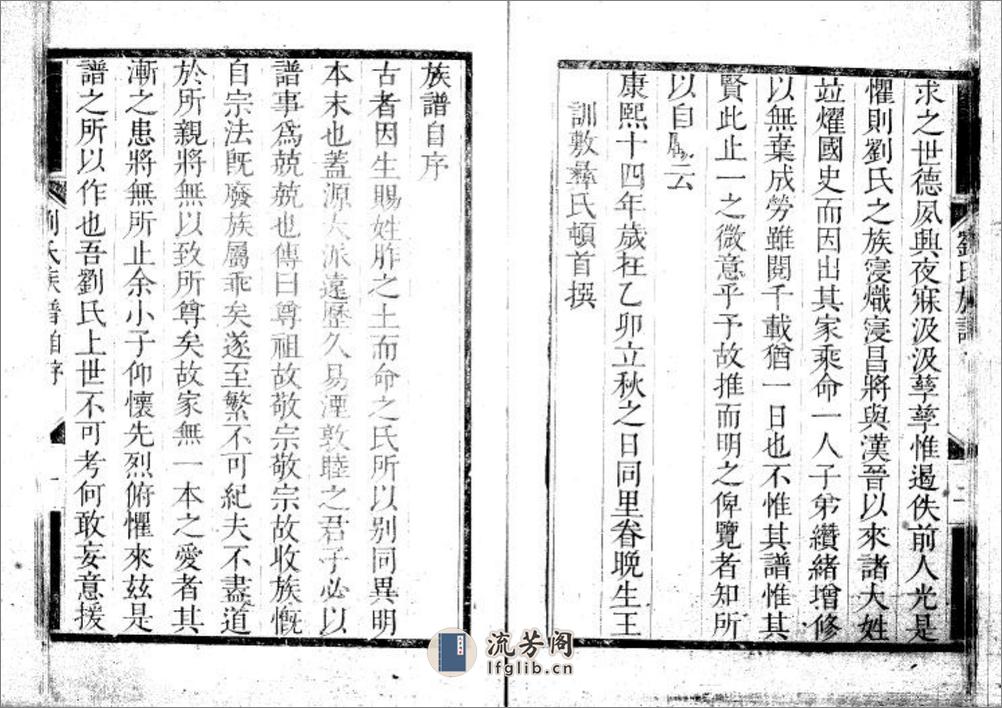 求之世德夙與夜寐汲汲孳孳惟遏佚前人光是
懼則劉氏之族寖熾寖昌將與漢晉以來諸大姓
竝燿國史而因出其家乘命一人子弟纘緒增修
以無棄成勞雖閱千載猶一日也不惟其譜惟其
賢此止一之微意乎予故推而明之俾覽者知所
以自勵云
康熙十四年歲在乙卯立秋之日同里眷晚生王
訓敷彝氏頓首撰
劉氏族譜
二
族譜自序
古者因生賜姓胙之土而命之氏所以别同異明
本末也蓋源大派遠歷久易湮敦睦之君子必以
譜事爲兢兢也傳曰尊祖故敬宗敬宗故收族慨
自宗法旣廢族屬乖矣遂至繁不可紀夫不盡道
於所親將無以致所尊矣故家無一本之愛者其
漸之患將無所止余小子仰懷先烈俯懼來玆是
譜之所以作也吾劉氏上世不可考何敢妄意援
劉氏族譜自序
一
流芳阁
lfglib.cn